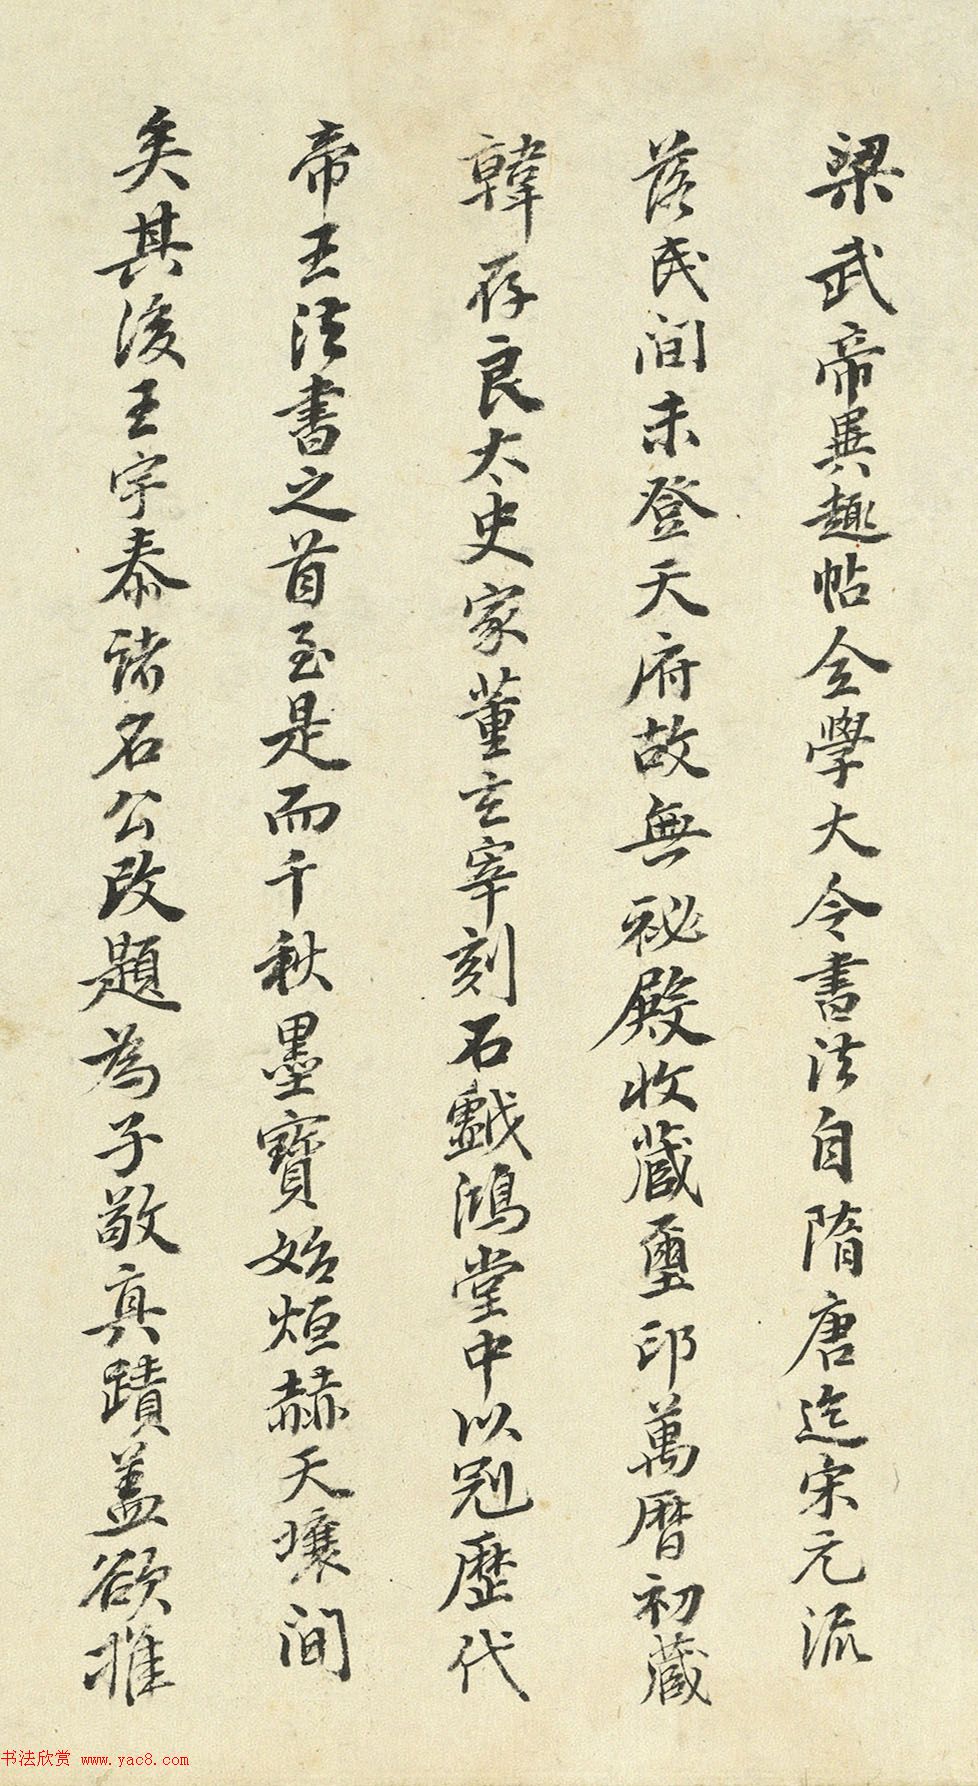 梁武帝異趣帖全學大令書法自隋唐迄宋元流
落民間未登天府故無秘殿收藏璽印萬曆初藏
韓存良太史家董玄宰刻石戲鴻堂中以冠歷代
帝王法書之首至是而千秋墨寶始烜赫天壤間
矣其後王宇泰諸名公改題為子敬真蹟盖欲推
书法欣赏 www.yac8.com